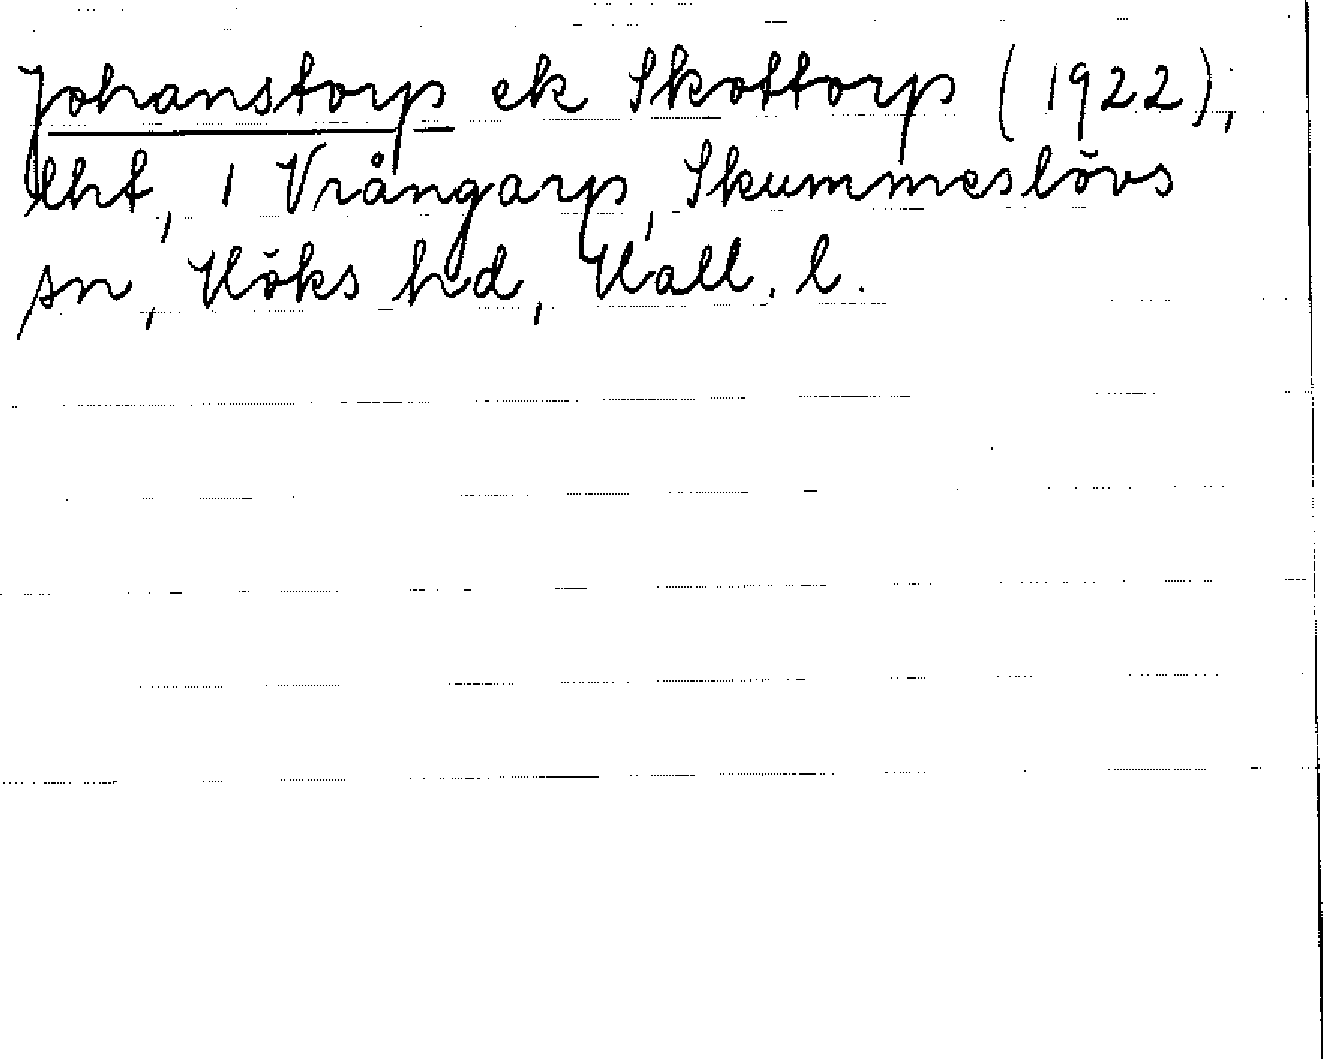 Johanstorp ek Skottorp (1922);
lht, 1 Vrångarp, Skummeslövs
sn, Höks hd, Hall. l.